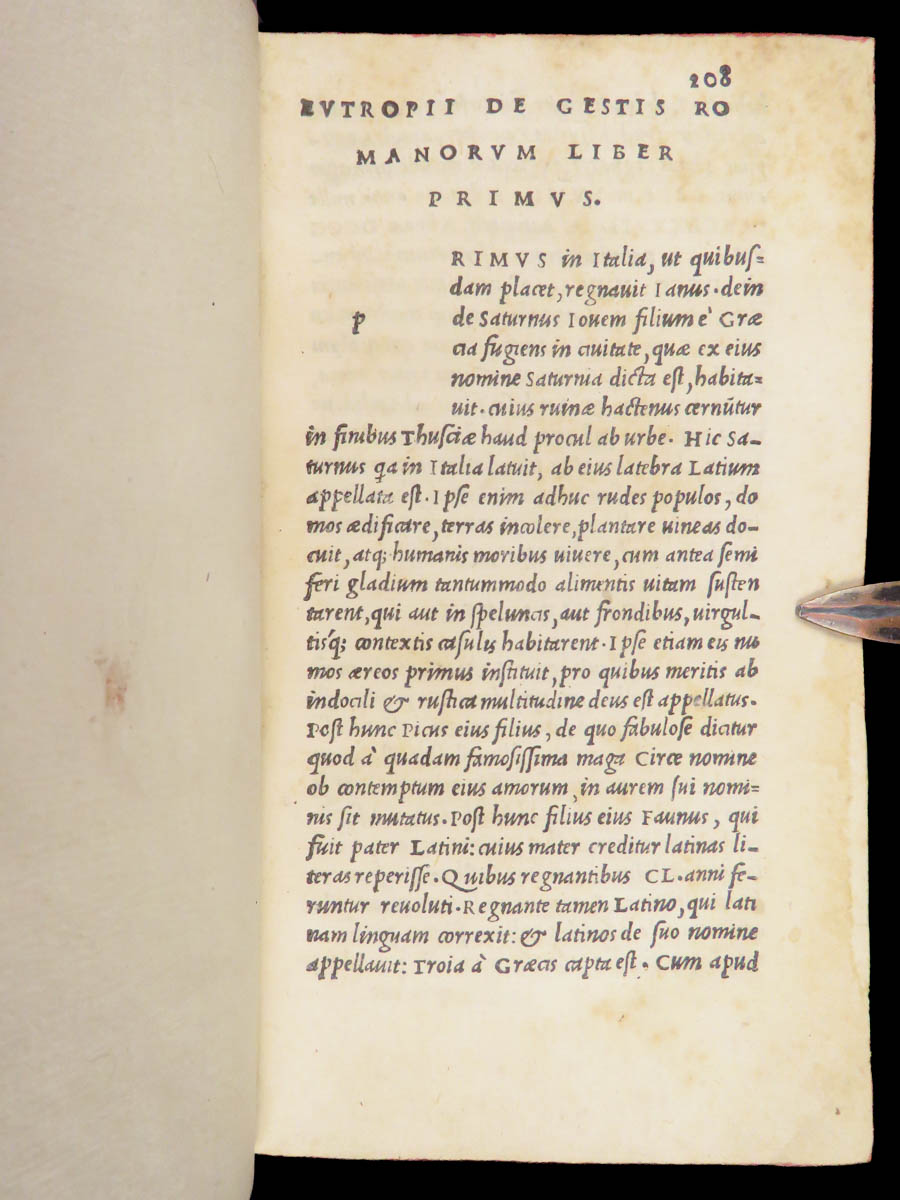 208
EVTROPII DE GESTIS RO
MANORVM LIBER
PRIMVS.
RIMVS in Italia, ut quibus=
dam placet, regnauit Ianus. dein
p de Saturnus Iouem filium è Græ
cia fugiens in ciuitate, quæ ex eius
nomine Saturnia dicta est, habita=
uit. cuius ruinæ hactenus cernūtur
in finibus Thusciæ haud procul ab urbe. Hic Sa-
turnus qa in Italia latuit, ab eius latebra Latium
appellata est. Ipse enim adhuc rudes populos, do
mos ædificare, terras incolere, plantare uineas do-
cuit, atq; humanis moribus uiuere, cum antea semi
feri gladium tantummodo alimentis uitam susten
tarent, qui aut in speluncis, aut frondibus, uirgul-
tisq́; contextis casulis habitarent. Ipse etiam eis nu
mos æreos primus instituit, pro quibus meritis ab
indocili & rustica multitudine deus est appellatus.
Post hunc Picus eius filius, de quo fabulose dicitur
quod à quadam famosissima maga Circe nomine
ob contemptum eius amorum, in auem sui nomi=
nis sit mutatus. Post hunc filius eius Faunus, qui
fuit pater Latini: cuius mater creditur latinas li-
teras reperisse. Quibus regnantibus CL. anni fe-
runtur reuoluti. Regnante tamen Latino, qui lati
nam linguam correxit: & latinos de suo nomine
appellauit: Troia à Græcis capta est. Cum apud